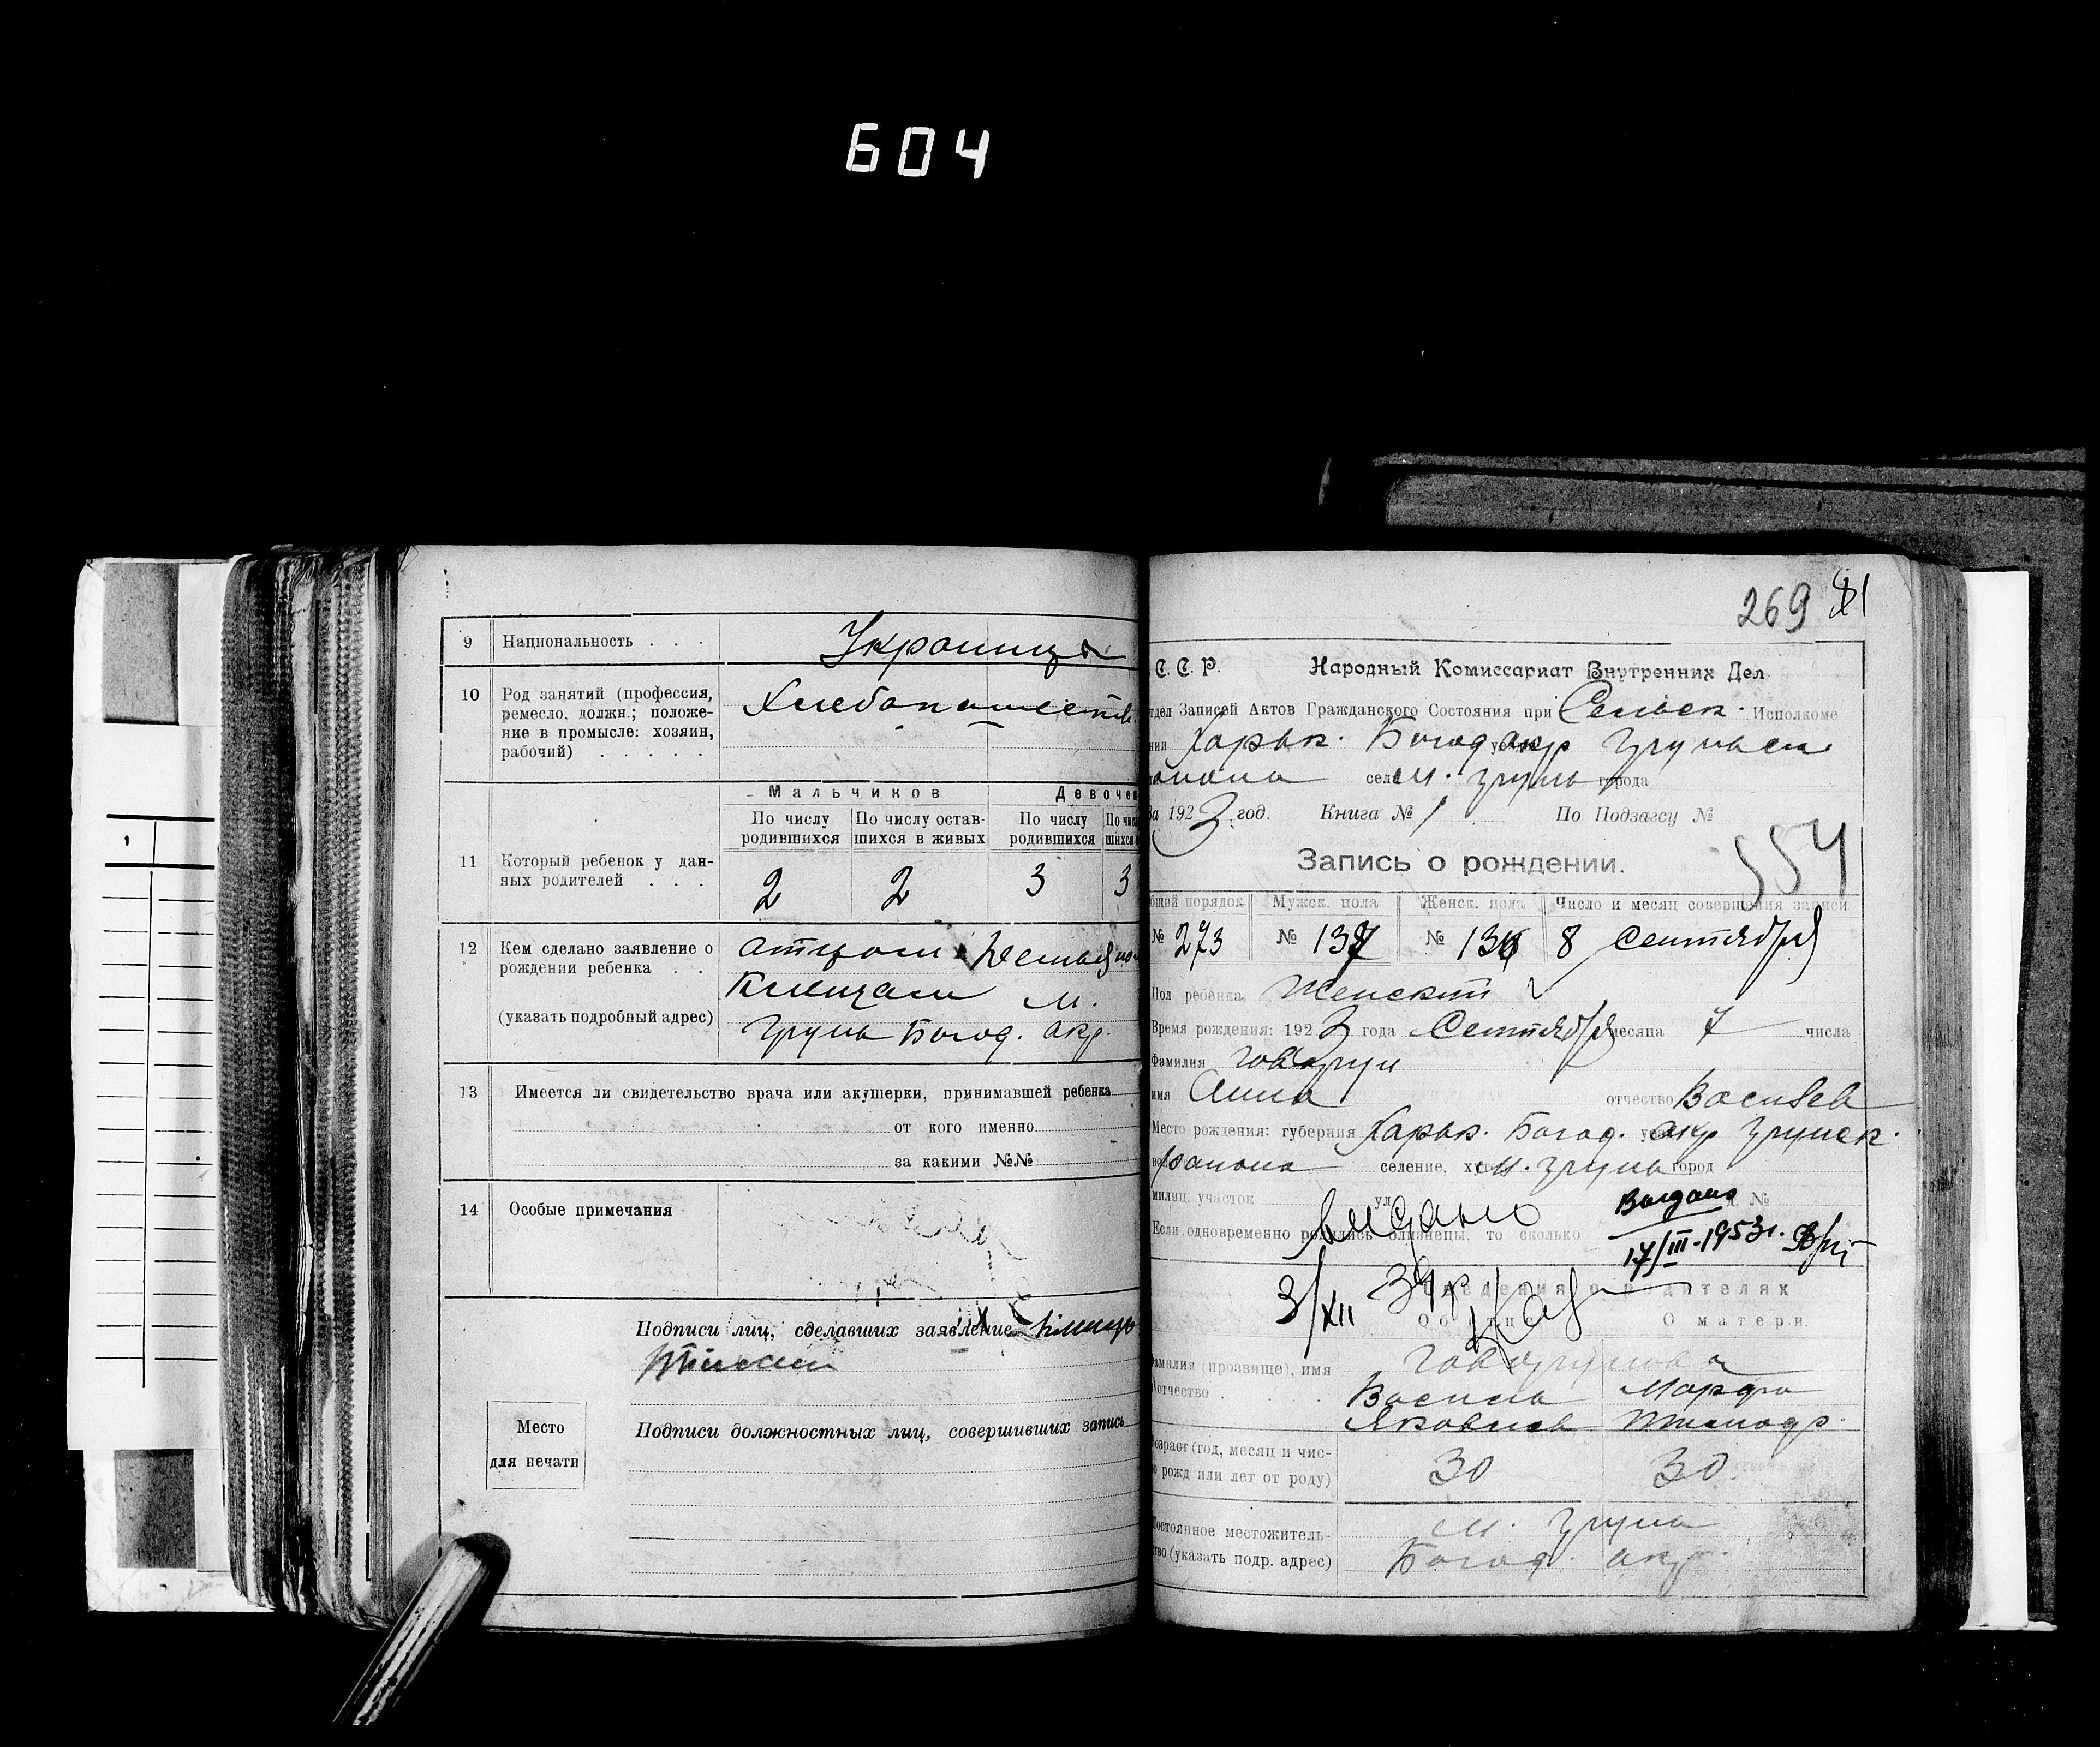 604
9 Национальность . . . Украинцы
10 Род занятий (профессия,
ремесло, должн.; положе-
ние в промысле: хозяин,
рабочий) . . . . .
Хлебопашеств.
Мальчиков Девоче
По числу родившихся По числу остав-шихся в живых По числу родившихся
11 Который ребенок у дан-
ных родителей . . .
2 2 3 3
12 Кем сделано заявление о
рождении ребенка . .
(указать подробный адрес)
отцом
м.
Грунь Богод. окр.
13 Имеется ли свидетельство врача или акушерки, принимавшей ребенка
от кого именно
за какими №№
14 Особые примечания
Подписи лиц, сделавших заявление
Подписи должностных лиц, совершивших запись
Место
для печати
269 81
С. С. Р. Народный Комиссариат Внутренних Дел
тдел Записей Актов Гражданского Состояния при Сельск. Исполкоме
нии Харьк. Богод окр Грунск
села м. Грунь города
За 1923 год. Книга № 1 По Подзагсу №
554
Запись о рождении.
бщий порядок Мужск. пола Женск. пола Число и месяц совершения записи
№ 273 № 137 № 136 8 Сентября
Пол ребенка Женский
Время рождения: 1923 года Сентября месяца 7 числа
Фамилия Говорун
имя Анна отчество Васильев
Место рождения: губерния Харьк. Богод. окр Грунск.
волона селение, м. Грунь город
милиц. участок ул. №
Если одновременно родились близнецы, то сколько
Выдано
Выдано
17/III-1953г.
3/XII 34
Сведения о родителях
Об отце О матери.
Фамилия (прозвище), имя Говорунова
отчество . . . Василь Марфа
Яковлев Тимоф.
Возраст (год, месяц и чис-
о рожд или лет от роду) 30 30
Постоянное местожитель-
ство (указать подр. адрес)
м. Грунь
Богод. окр.